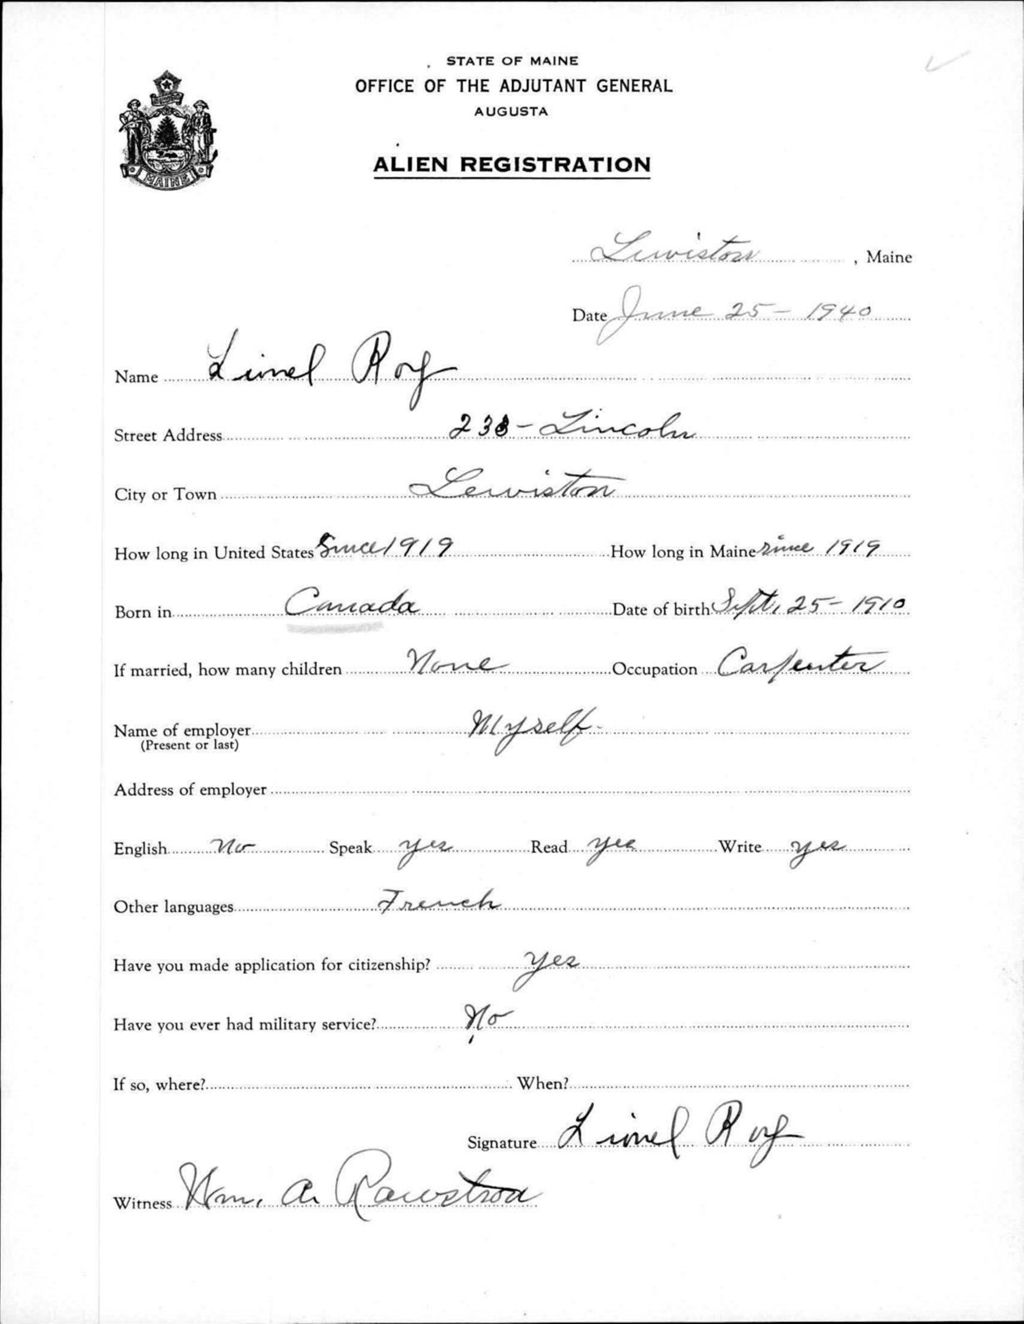 STATE OF MAINE
OFFICE OF THE ADJUTANT GENERAL
AUGUSTA
ALIEN REGISTRATION
MAINE
Lewiston, Maine
Date June 25 - 1940
Name Lionel Roy
Street Address 238 - Lincoln
City or Town Lewiston
How long in United States Since 1919 How long in Maine since 1919
Born in Canada Date of birth Sept, 25 - 1910
If married, how many children None Occupation Carpenter
Name of employer Myself -
(Present or last)
Address of employer
English No Speak yes Read yes Write yes
Other languages French
Have you made application for citizenship? Yes
Have you ever had military service? No
If so, where? When?
Signature Lionel Roy
Witness Wm. A. Rawstron